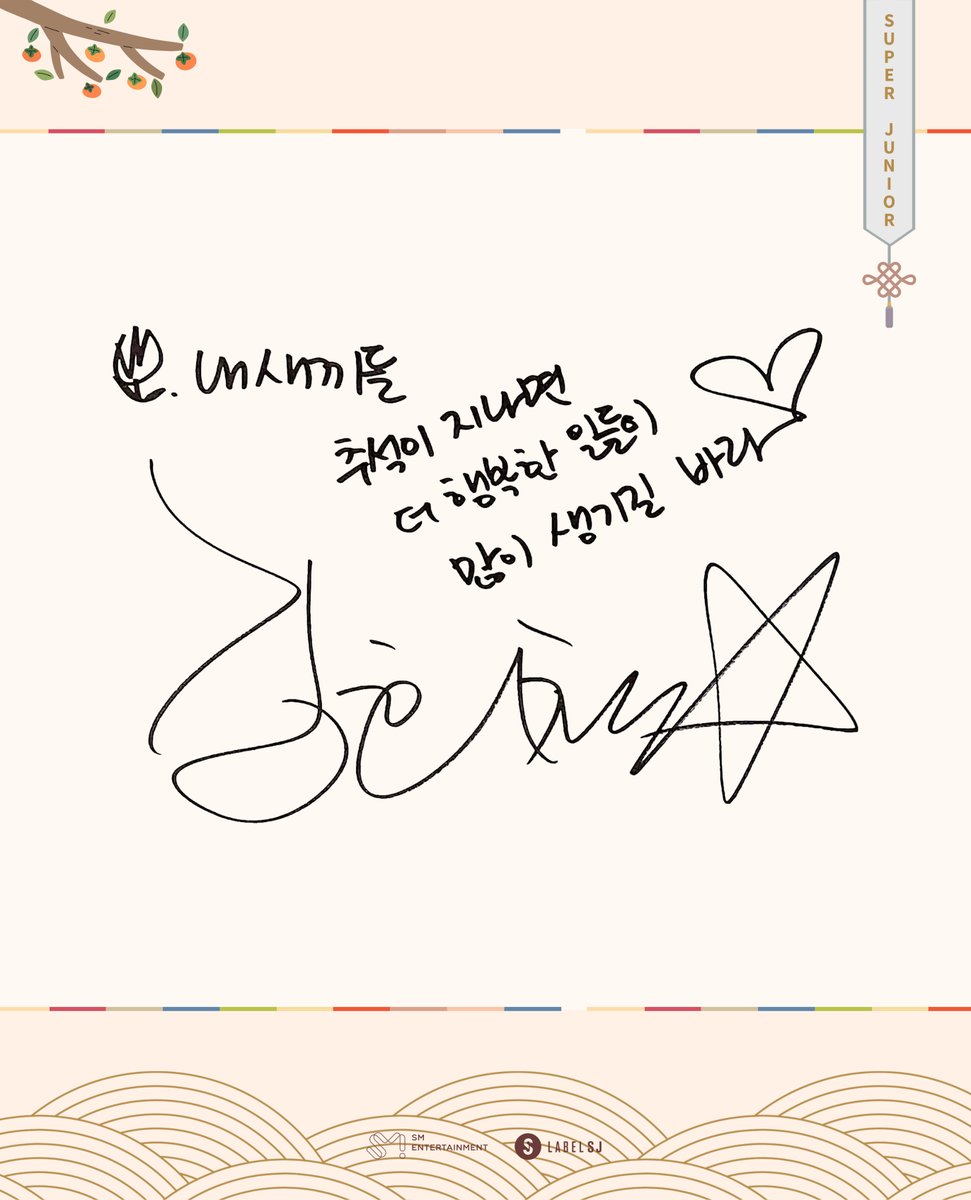 SUPER JUNIOR
내새끼들
추석이 지나면
더 행복한 일들이
많이 생기길 바라
SM
ENTERTAINMENT
LABEL SJ